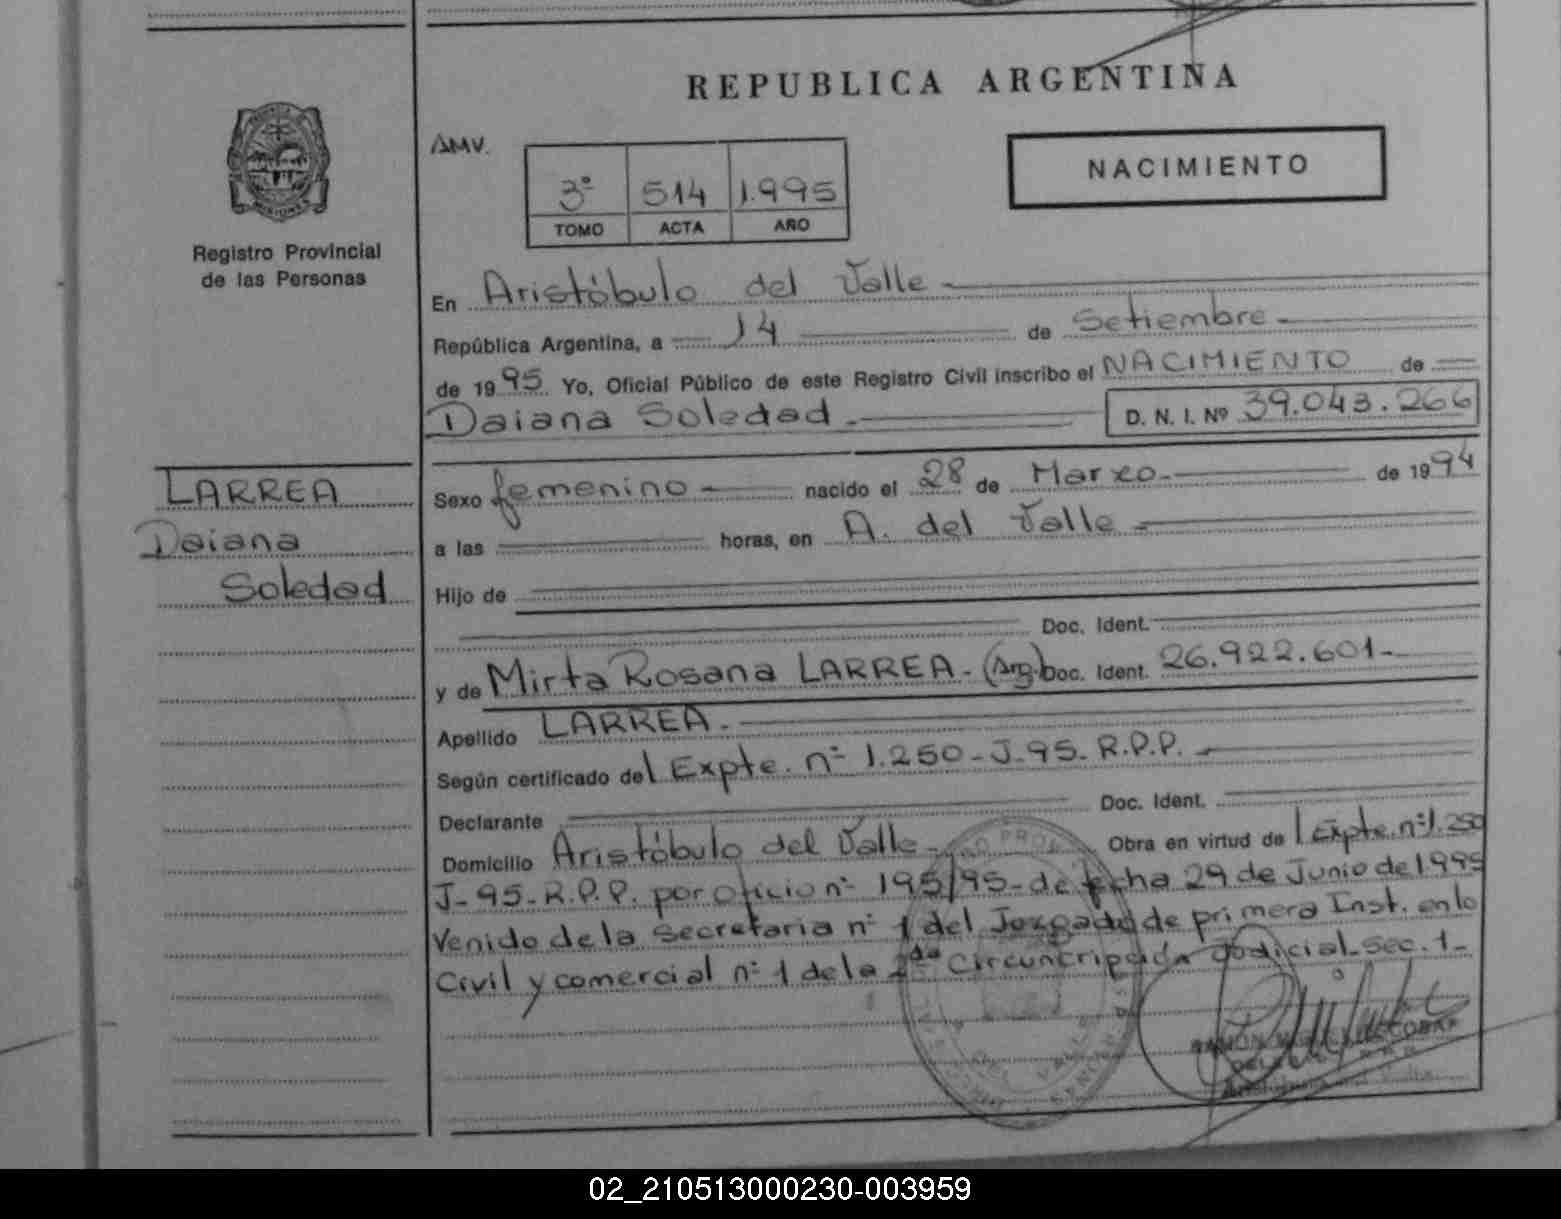 REPUBLICA ARGENTINA
AMV.
3º 514 1.995
TOMO ACTA AÑO
NACIMIENTO
MISIONES
Registro Provincial
de las Personas
En Aristóbulo del Valle
República Argentina, a 14 de Setiembre
de 1995 Yo, Oficial Público de este Registro Civil inscribo el NACIMIENTO de
Daiana Soledad. D. N. I. Nº 39.043.266
LARREA
Daiana
Soledad
Sexo femenino nacido el 28 de Marzo de 1994
a las horas, en A. del Valle
Hijo de
Doc. Ident.
y de Mirta Rosana LARREA. (Arg.) Doc. Ident. 26.922.601-
Apellido LARREA.
Según certificado del Expte. nº 1.250-J-95- R.P.P.
Declarante Doc. Ident.
Domicilio Aristóbulo del Valle. Obra en virtud del Expte. nº 1.250
J-95-R.P.P. por oficio nº 195/95-de fecha 29 de Junio de 1.995
Venido de la secretaria nº 1 del Juzgado de primera Inst. en lo
Civil y comercial nº 1 de la Circuncripción Judicial-sec. 1-
DEL VALLE
MISIONES
ESCOBAR
02_210513000230-003959